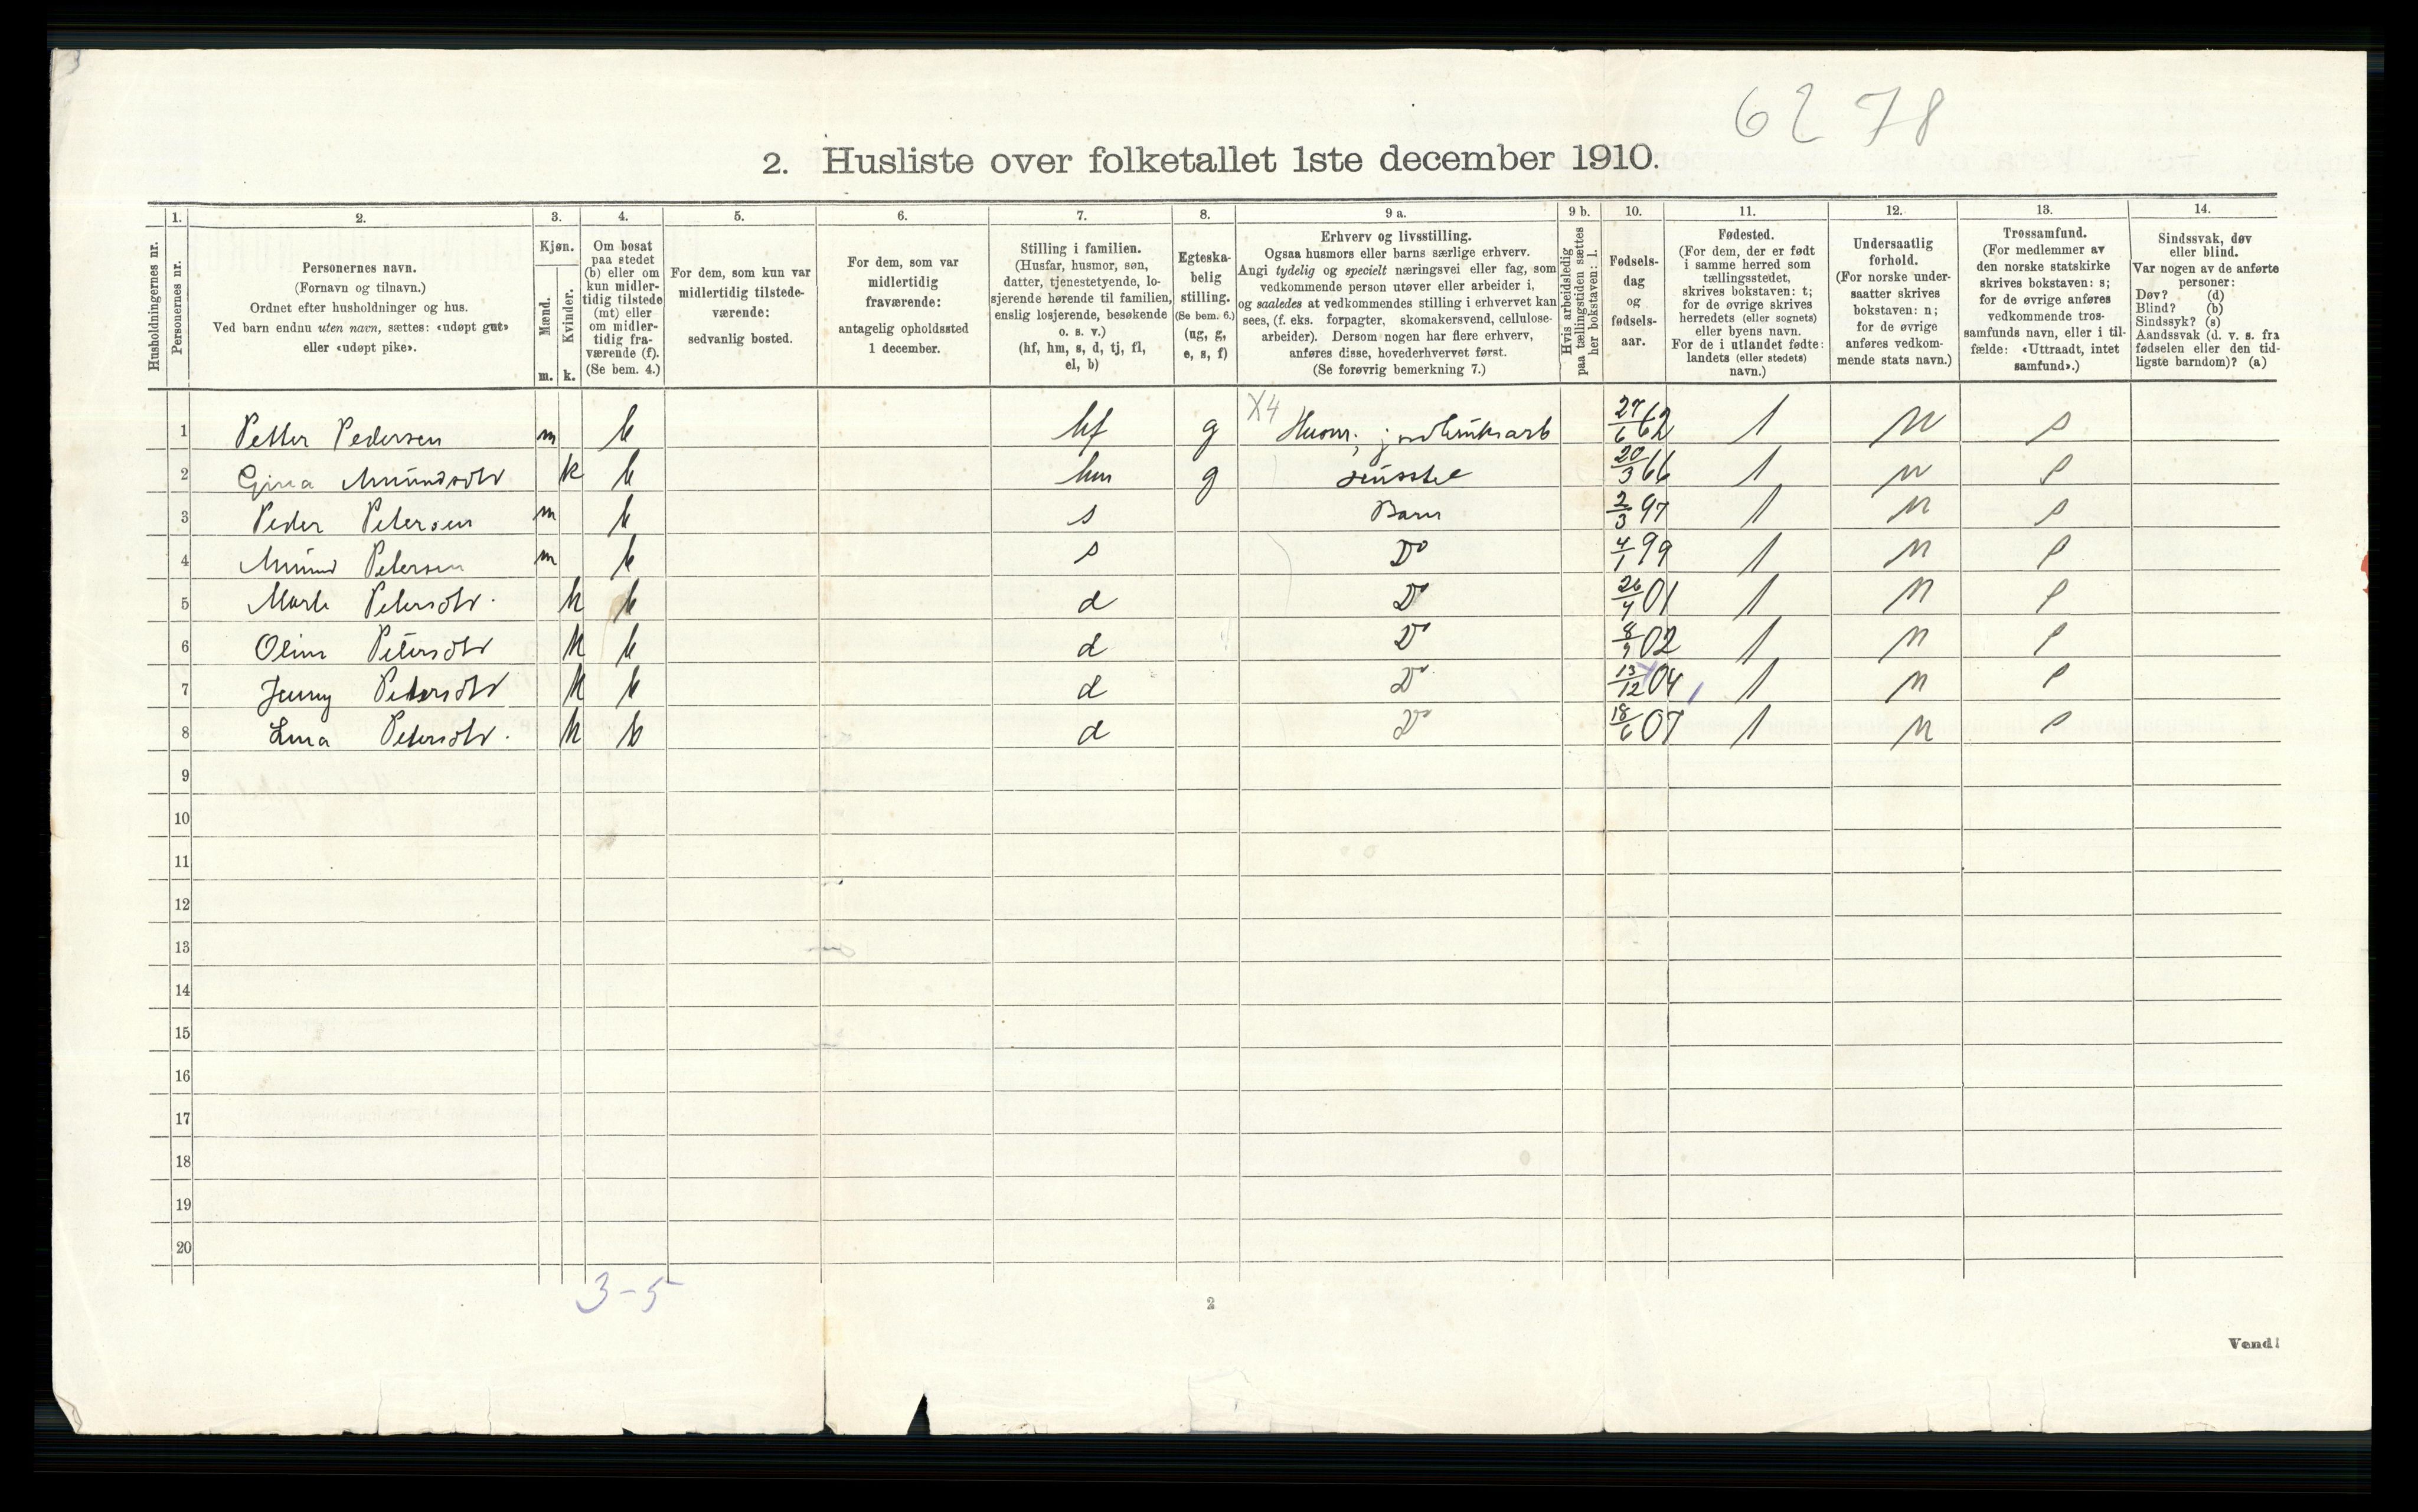 62 78
2. Husliste over folketallet 1ste december 1910.
Husholdningernes nr.
1.
Personernes nr.
2.
Personernes navn.
(Fornavn og tilnavn.)
Ordnet efter husholdninger og hus.
Ved barn endnu uten navn, sættes: «udøpt gut»
eller «udøpt pike».
3.
Kjøn.
Mænd.
m.
Kvinder.
k.
4.
Om bosat
paa stedet
(b) eller om
kun midler-
tidig tilstede
(mt) eller
om midler-
tidig fra-
værende (f).
(Se bem. 4.)
5.
For dem, som kun var
midlertidig tilstede-
værende:
sedvanlig bosted.
6.
For dem, som var
midlertidig
fraværende:
antagelig opholdssted
1 december.
7.
Stilling i familien.
(Husfar, husmor, søn,
datter, tjenestetyende, lo-
sjerende hørende til familien,
enslig losjerende, besøkende
o. s. v.)
(hf, hm, s, d, tj, fl,
el, b)
8.
Egteska-
belig
stilling.
(Se bem. 6.)
(ug, g,
e, s, f)
9 a.
Erhverv og livsstilling.
Ogsaa husmors eller barns særlige erhverv.
Angi tydelig og specielt næringsvei eller fag, som
vedkommende person utøver eller arbeider i,
og saaledes at vedkommendes stilling i erhvervet kan
sees, (f. eks. forpagter, skomakersvend, cellulose-
arbeider). Dersom nogen har flere erhverv,
anføres disse, hovederhvervet først.
(Se forøvrig bemerkning 7.)
9 b.
Hvis arbeidsledig
paa tællingstiden sættes
her bokstaven: l.
10.
Fødsels-
dag
og
fødsels-
aar.
11.
Fødested.
(For dem, der er født
i samme herred som
tællingsstedet,
skrives bokstaven: t;
for de øvrige skrives
herredets (eller sognets)
eller byens navn.
For de i utlandet fødte:
landets (eller stedets)
navn.)
12.
Undersaatlig
forhold.
(For norske under-
saatter skrives
bokstaven: n;
for de øvrige
anføres vedkom-
mende stats navn.)
13.
Trossamfund.
(For medlemmer av
den norske statskirke
skrives bokstaven: s;
for de øvrige anføres
vedkommende tros-
samfunds navn, eller i til-
fælde: «Uttraadt, intet
samfund».)
14.
Sindssvak, døv
eller blind.
Var nogen av de anførte
personer:
Døv? (d)
Blind? (b)
Sindssyk? (s)
Aandssvak (d. v. s. fra
fødselen eller den tid-
ligste barndom)? (a)
X4
1 Petter Pedersen m b hf g Husm. jordbruksarb 27/6 62 t n s
2 Gina Amundsdtr k b hm g Husstel 20/3 66 t n s
3 Peder Petersen m b s Barn 2/3 97 t n s
4 Amund Petersen m b s Do 4/1 99 t n s
5 Marte Petersdtr. k b d Do 26/4 01 t n s
6 Oline Petersdtr k b d Do 8/9 02 t n s
7 Jenny Petersdtr k b d Do 13/12 04 t n s
8 Lina Petersdtr. k b d Do 18/6 07 t n s
9
10
11
12
13
14
15
16
17
18
19
20
3-5
2
Vend!